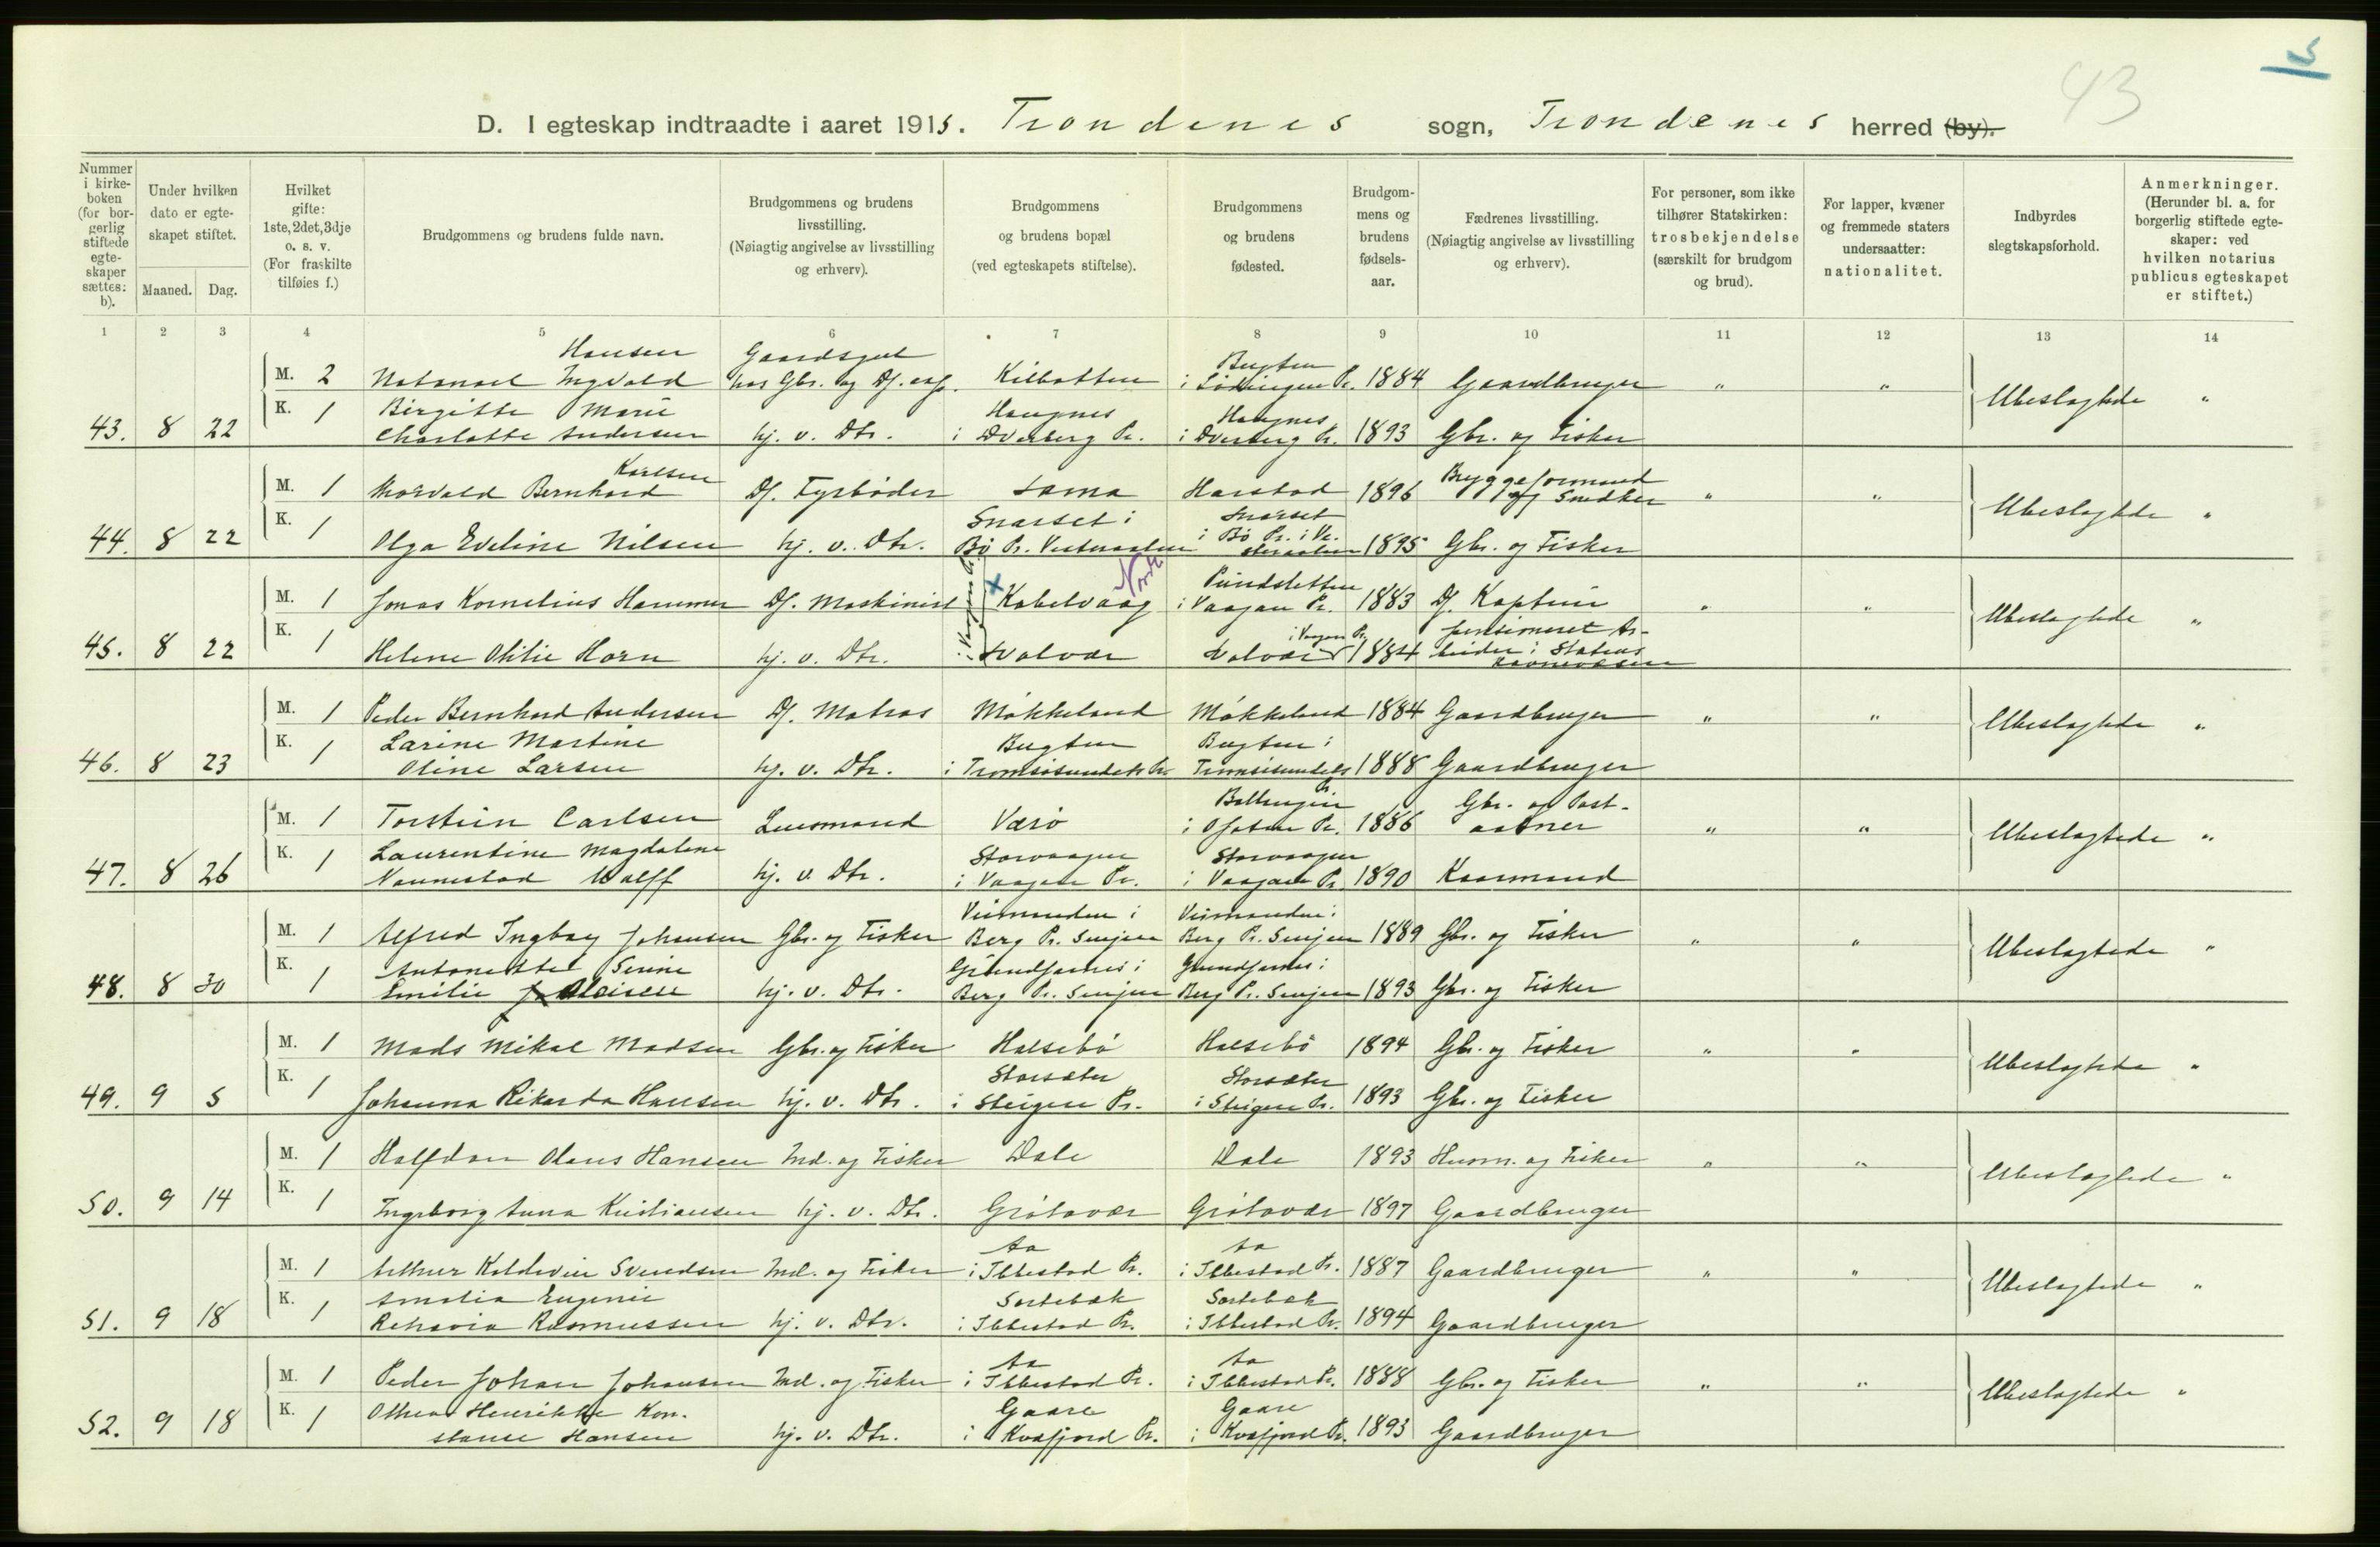 43
D. I egteskap indtraadte i aaret 1915. Trondenes sogn, Trondenes herred (by).
Nummer i kirkeboken (for borgerlig stiftede egteskaper sættes: b).
Under hvilken dato er egteskapet stiftet.
Maaned. Dag.
Hvilket gifte: 1ste, 2det, 3dje o. s. v. (For fraskilte tilføies f.)
Brudgommens og brudens fulde navn.
Brudgommens og brudens livsstilling. (Nøiagtig angivelse av livsstilling og erhverv).
Brudgommens og brudens bopæl (ved egteskapets stiftelse).
Brudgommens og brudens fødested.
Brudgommens og brudens fødselsaar.
Fædrenes livsstilling. (Nøiagtig angivelse av livsstilling og erhverv).
For personer, som ikke tilhører Statskirken: trosbekjendelse (særskilt for brudgom og brud).
For lapper, kvæner og fremmede staters undersaatter: nationalitet.
Indbyrdes slegtskapsforhold.
Anmerkninger. (Herunder bl. a. for borgerlig stiftede egteskaper: ved hvilken notarius publicus egteskapet er stiftet.)
1 2 3 4 5 6 7 8 9 10 11 12 13 14
Hansen Gaardsgut Bugten
M. 2 Natanael Ingvald hos Gbr. og Df. Kilbotten i Lødingen Pr. 1884 Gaardbruger " " Ubeslægtede "
K. 1 Birgitte Marie Haugnes Haugnes
43. 8 22 Charlotte Andersen hj. v. Dtr. i Dverberg Pr. i Dverberg Pr. 1893 Gbr. og Fisker
Karlsen Bryggeformand
M. 1 Thorvald Bernhard Df. Fyrbøder Sama Harstad 1896 og Snedker " " Ubeslægtede "
K. 1 Snarset i Snarset
44. 8 22 Olga Eveline Nilsen hj. v. Dtr. Bø Pr. Vesteraalen i Bø Pr. i Vesteraalen 1895 Gbr. og Fisker
Nordl. Pundsletten
M. 1 Jonas Kornelius Hammer Df. Maskinist Kabelvaag i Vaagan Pr. 1883 Df. Kaptein " " Ubeslægtede "
K. 1 i Vaagan Pr. i Vaagan Pr. pensioneret Ar-
45. 8 22 Helene Otilie Horn hj. v. Dtr. Svolvær Svolvær 1884 beider i Statens
Havnevæsen
M. 1 Peder Bernhard Andersen Df. Matros Møkkeland Møkkeland 1884 Gaardbruger " " Ubeslægtede "
K. 1 Larine Martine Bugten Bugten i
46. 8 23 Oline Larsen hj. v. Dtr. i Tromsøsundets Pr. Tromsøsundets Pr. 1888 Gaardbruger
Ballangen Gbr. og Post-
M. 1 Torstein Carlsen Lensmand Værø i Ofoten Pr. 1886 aabner " " Ubeslægtede "
K. 1 Laurentine Magdalene Storvaagen Storvaagen
47. 8 26 Naumestad Wolff hj. v. Dtr. i Vaagan Pr. i Vaagan Pr. 1890 Kaarmand
Veimanden i Veimanden i
M. 1 Alfred Ingbay Johansen Gbr. og Fisker Berg Pr. Senjen Berg Pr. Senjen 1889 Gbr. og Fisker " " Ubeslægtede "
K. 1 Antonette Serine Grundfarnes i Grundfarnes i
48. 8 30 Emilie Aloisen hj. v. Dtr. Berg Pr. Senjen Berg Pr. Senjen 1893 Gbr. og Fisker
M. 1 Mads Mikal Madsen Gbr. og Fisker Halsebø Halsebø 1894 Gbr. og Fisker " " Ubeslægtede "
K. 1 Storsæter Storsæter
49. 9 5 Johanna Rikarda Hansen hj. v. Dtr. i Steigen Pr. i Steigen Pr. 1893 Gbr. og Fisker
M. 1 Halfdan Olaus Hansen Ind. og Fisker Dale Dale 1893 Husm. og Fisker " " Ubeslægtede "
K. 1
50. 9 14 Ingeborg Anna Kristiansen hj. v. Dtr. Grøtavær Grøtavær 1897 Gaardbruger
Aa Aa
M. 1 Arthur Koldevin Svendsen Ind. og Fisker i Ibbestad Pr. i Ibbestad Pr. 1887 Gaardbruger " " Ubeslægtede "
K. 1 Amalia Eugenie Sørtebæk Sørtebæk
51. 9 18 Rasmussen hj. v. Dtr. i Ibbestad Pr. i Ibbestad Pr. 1894 Gaardbruger
Aa Aa
M. 1 Peder Johan Johansen Ind. og Fisker i Ibbestad Pr. i Ibbestad Pr. 1888 Gbr. og Fisker " " Ubeslægtede "
K. 1 Othea Henrikke Kon- Gaare Gaare
52. 9 18 stanse Hansen hj. v. Dtr. i Kvæfjord Pr. i Kvæfjord Pr. 1893 Gaardbruger